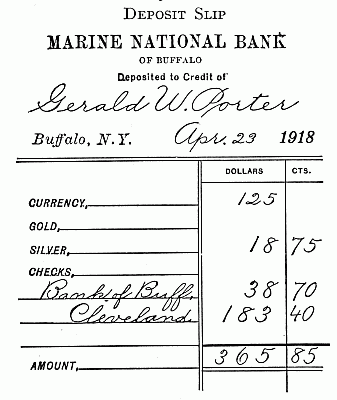 DEPOSIT SLIP
MARINE NATIONAL BANK
OF BUFFALO
Deposited to Credit of
Gerald W. Porter
Buffalo, N.Y. Apr. 23 1918
DOLLARS CTS.
CURRENCY, 125
GOLD,
SILVER, 18 75
CHECKS,
Bank of Buff. 38 70
Cleveland 183 40
AMOUNT, 365 85